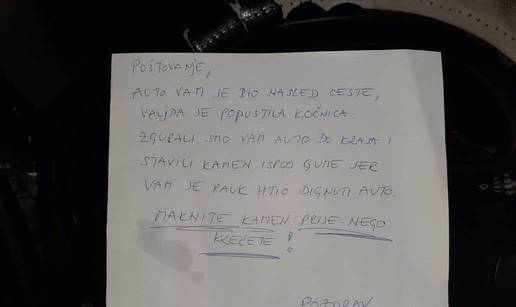 POŠTOVANJE,
AUTO VAM JE BIO NASRED CESTE,
VALJDA JE POPUSTILA KOČNICA.
ZGURALI SMO VAM AUTO DO KRAJA I
STAVILI KAMEN ISPOD GUME JER
VAM JE PAUK HTIO DIGNUTI AUTO.
MAKNITE KAMEN PRIJE NEGO
KREĆETE!
POZDRAV